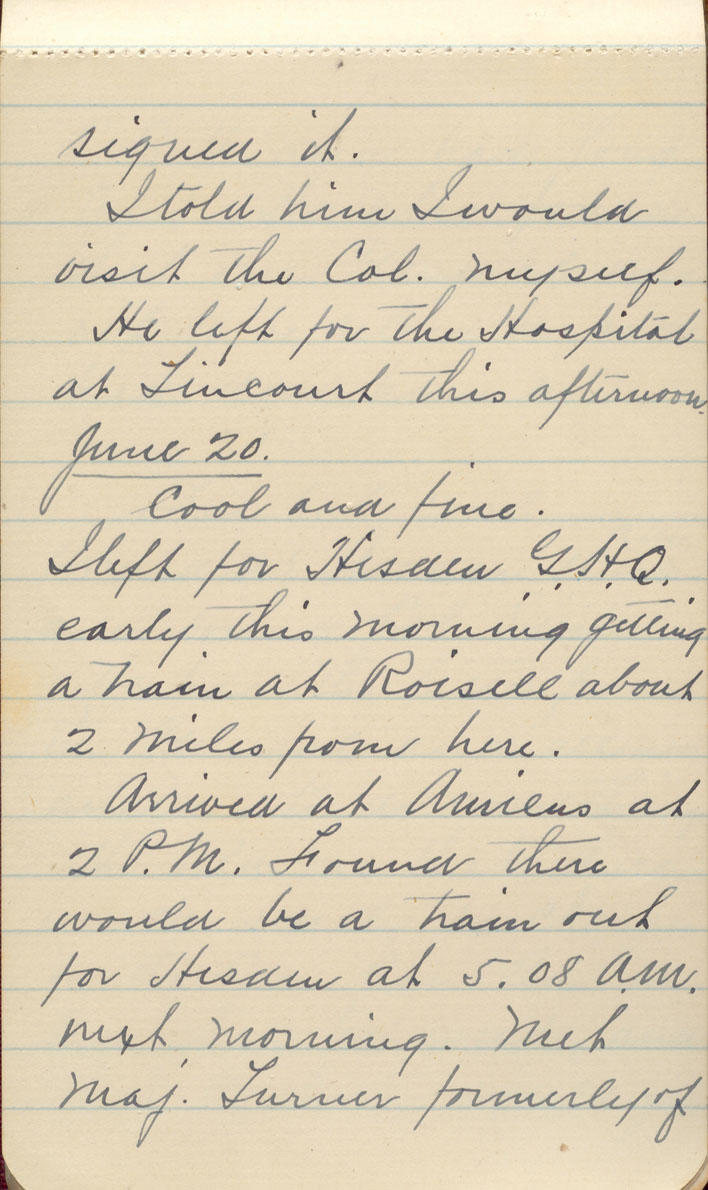 signed it.
I told him I would
visit the Col. myself.
He left for the Hospital
at Tincourt this afternoon.
June 20.
Cool and fine.
I left for Hesden G.H.Q.
early this morning getting
a train at Roisell about
2 miles from here.
Arrived at Amiens at
2 P.M. Found there
would be a train out
for Hesden at 5.08 A.M.
next morning. Met
Maj. Turner formerly of